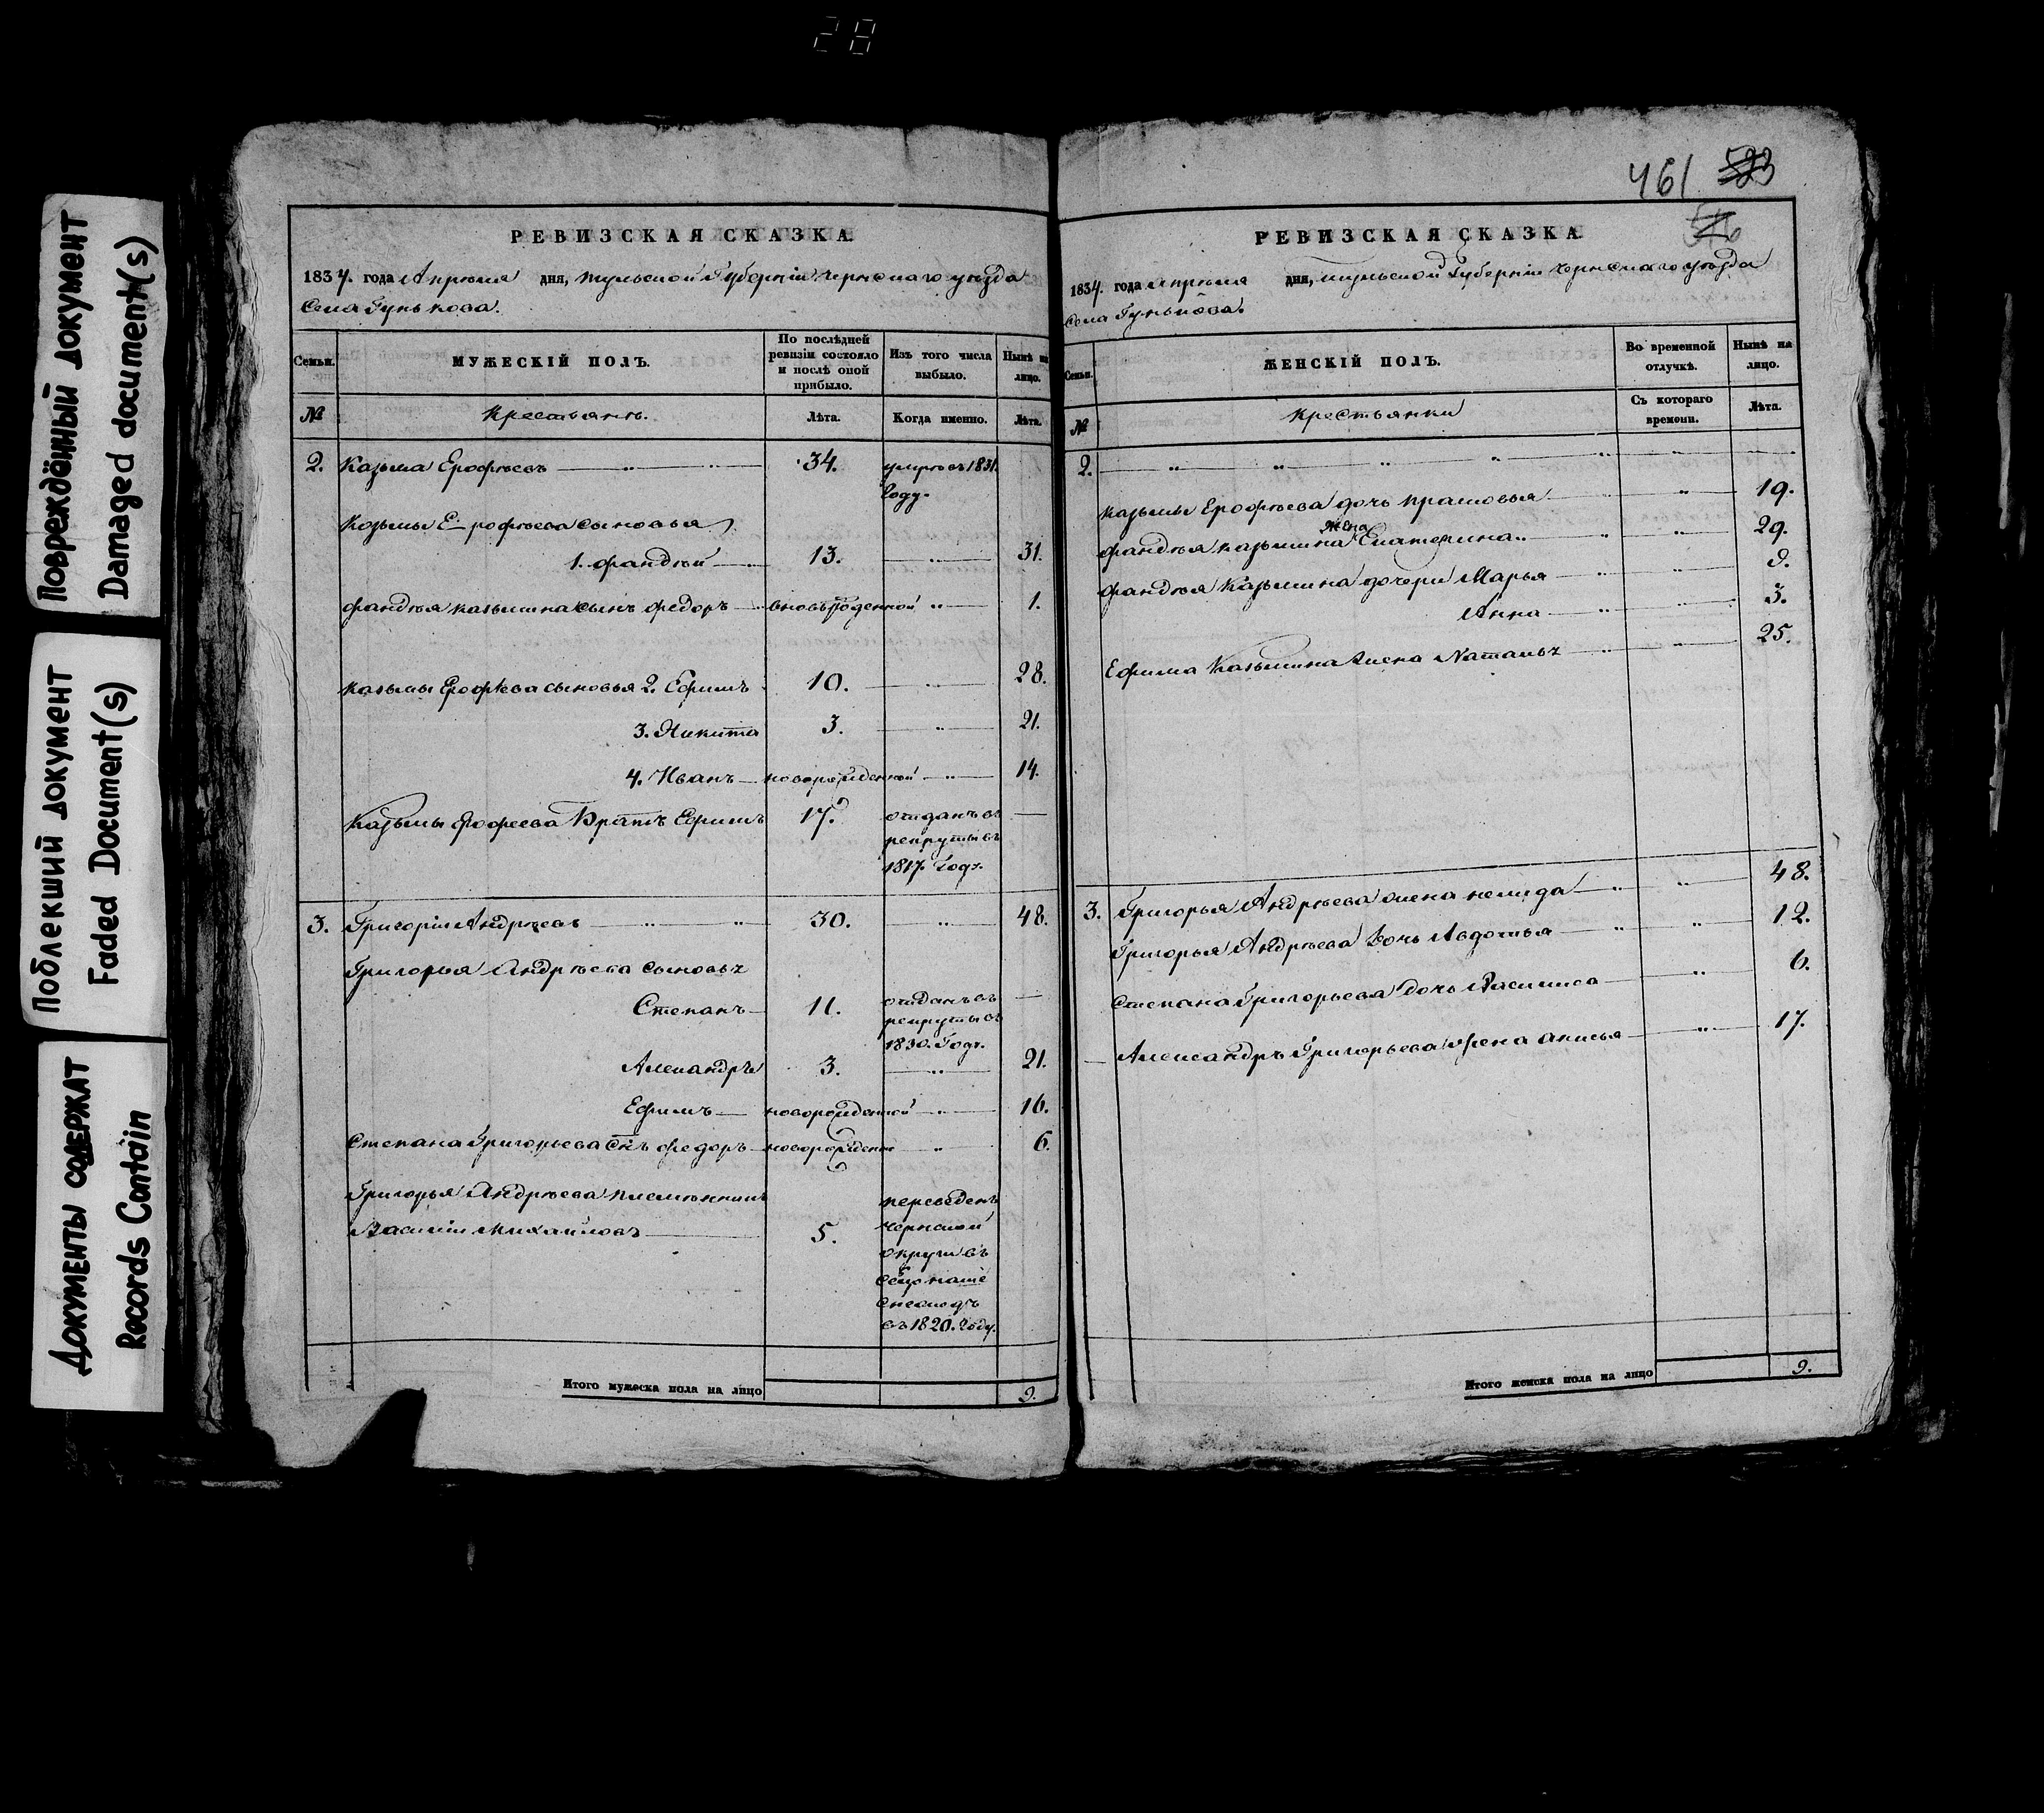 28
Повреждённый документ
Damaged document(s)
Поблекший документ
Faded Document(s)
Документы содержат
Records Contain
РЕВИЗСКАЯ СКАЗКА.
1834. года Апреля дня, тульской Губерніи Чернскаго уезда
Села Гунькова.
Семьи.
МУЖЕСКІЙ ПОЛЪ.
По послѣдней ревизіи состояло и послѣ оной прибыло.
Изъ того числа выбыло.
Нынѣ на лицо.
№
Крестьянъ.
Лѣта.
Когда именно.
Лѣта.
2. Казьма Ерофѣевъ 34. умре въ 1831.
Году.
Козьмы Ерофѣева сыновья
1. фандѣй 13. 31.
фандѣя казьмина сынъ федоръ вновь роденной 1.
казьмы Ерофѣева сыновья 2. Ефимъ 10. 28.
3. Никита 3. 21.
4. Иванъ новорожденной 14.
Казьмы Ерофеева Братъ Ефимъ 17. отданъ въ
рекруты въ
1817. Годъ.
3. Григоріи Андрѣевъ 30. 48.
Григорья Андрѣева сыновья
Степанъ 11. отданъ въ
рекруты въ
1830. Годъ.
Александръ 3. 21.
Ефимъ новорожденной 16.
Степана Григорьева снъ федоръ новорожденн 6.
Григорья Андрѣева племѣнникъ переведенъ
Василіи Михайловъ 5. Чернской
округи въ
сельцо
въ 1820. Году.
Итого мужеска пола на лицо 9.
461 523
РЕВИЗСКАЯ СКАЗКА.
1834. года Апреля дня, тульской Губерніи Чернскаго уезда
Села Гунькова.
Семьи.
ЖЕНСКІЙ ПОЛЪ.
Во временной отлучкѣ.
Нынѣ на лицо.
№
Крестьянки
Съ котораго времени.
Лѣта.
2.
Казьмы Ерофѣева дочь прасковья 19.
жена
фандѣя казьмина Екатерина 29.
фандѣя Казьмина дочери Марья 9.
Анна 3.
Ефима Казьмина жена Наталья 25.
3. Григорья Андрѣева жена 48.
Григорья Андрѣева Дочь Авдотья 12.
Степана Григорьева Дочь Василиса 6.
Александръ Григорьева жена анисья 17.
Итого женска пола на лицо 9.